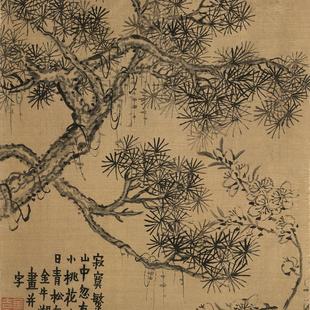 寂寞繁
山中忽
小桃花
日青松
金牛湖
畫并
字